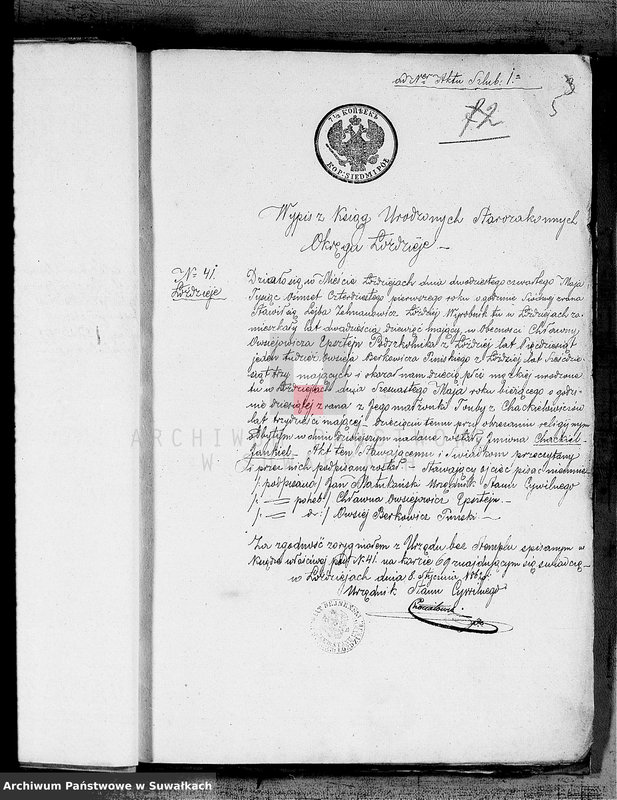 od Ner Aktu Szlub: 1o
3
5
72
7½ KOPѢEKЪ
KOP: SIEDM I PÓŁ
Wypis z Ksiąg Urodzonych Starozakonnych
Okręgu Łóździeje. —
No 41.
Łóździeje
Działo się w Mieście Łóździejach dnia dwudziestego czwartego Maja
Tysiąc Ośmset Czterdziestego pierwszego roku o godzinie siódmej zrana
Stawił się Lejba Zelmanowicz Łóżdziej Wyrobnik tu w Łóździejach za-
mieszkały lat dwadzieścia dziewięć mający, w obecności Chławny
Owsiejowicza Epsztejn Podszkolnika z Łóździej lat pięćdziesiąt
jeden tudzież Owsieja Berkowicza Pińskiego z Łóździej lat
siąt trzy mających i okazał nam dziecię płci męskiej urodzone
tu w Łóździejach dnia Maja roku bieżącego o godzi-
nie dziesiątej zrana z Jego małżonki Tauby z Chackielowiczów
lat trzydzieści mającej. — dziecięciu temu przy obrzezaniu religijnym
odbytym w dniu dzisiejszym nadane zostały Imiona Chackiel
Jankiel — Akt ten Stawającemu i świadkom przeczytany
i przez nich podpisany został. — Stawający ojciec pisać nieumie
/: podpisano / Jan Urzędnik Stanu Cywilnego
/: — / Chławna Owsiejowicz Epsztejn. —
/: — d: / Owsiej Berkowicz Piński —
Za zgodność z oryginałem z Urzędu bez Stempla spisanym w
Księdze właściwej pod N. 41. na karcie 69 znajdującym się świadczę —
w Łóździejach dnia 8 Stycznia r.
Urzędnik Stanu Cywilnego
ARCHIWUM PAŃSTWOWE
W SUWAŁKACH
Archiwum Państwowe w Suwałkach